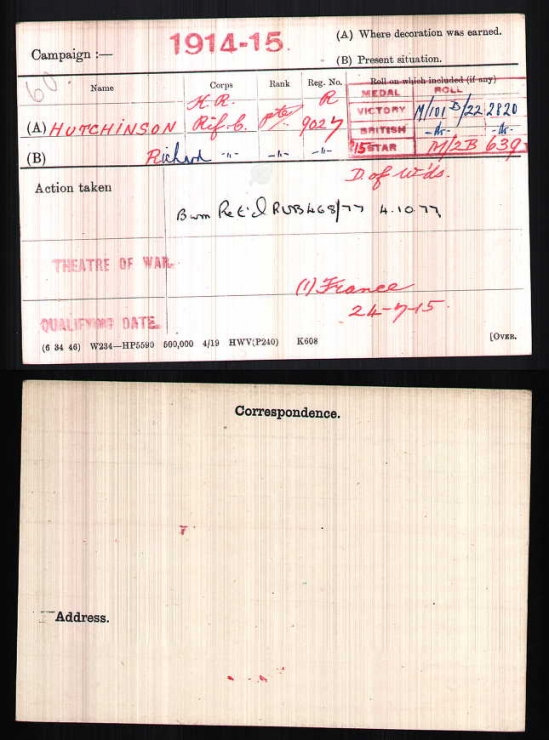 Campaign :— 1914-15.
(A) Where decoration was earned.
(B) Present situation.
60
Name Corps Rank Reg. No. Roll on which included (if any)
MEDAL ROLL
K.R. R
(A) HUTCHINSON Rif. C. Pte 9027 VICTORY M/101 B/22 2820
BRITISH -do-
(B) Richard -"- -"- -"- '15 STAR M/2B 639
Action taken D of W'ds.
Bwm Ret'd RVB468/77 4.10.77
THEATRE OF WAR.
(1) France
24-7-15.
QUALIFYING DATE.
(6 34 46) W234—HP5590 500,000 4/19 HWV(P240) K608 [OVER.
Correspondence.
Address.